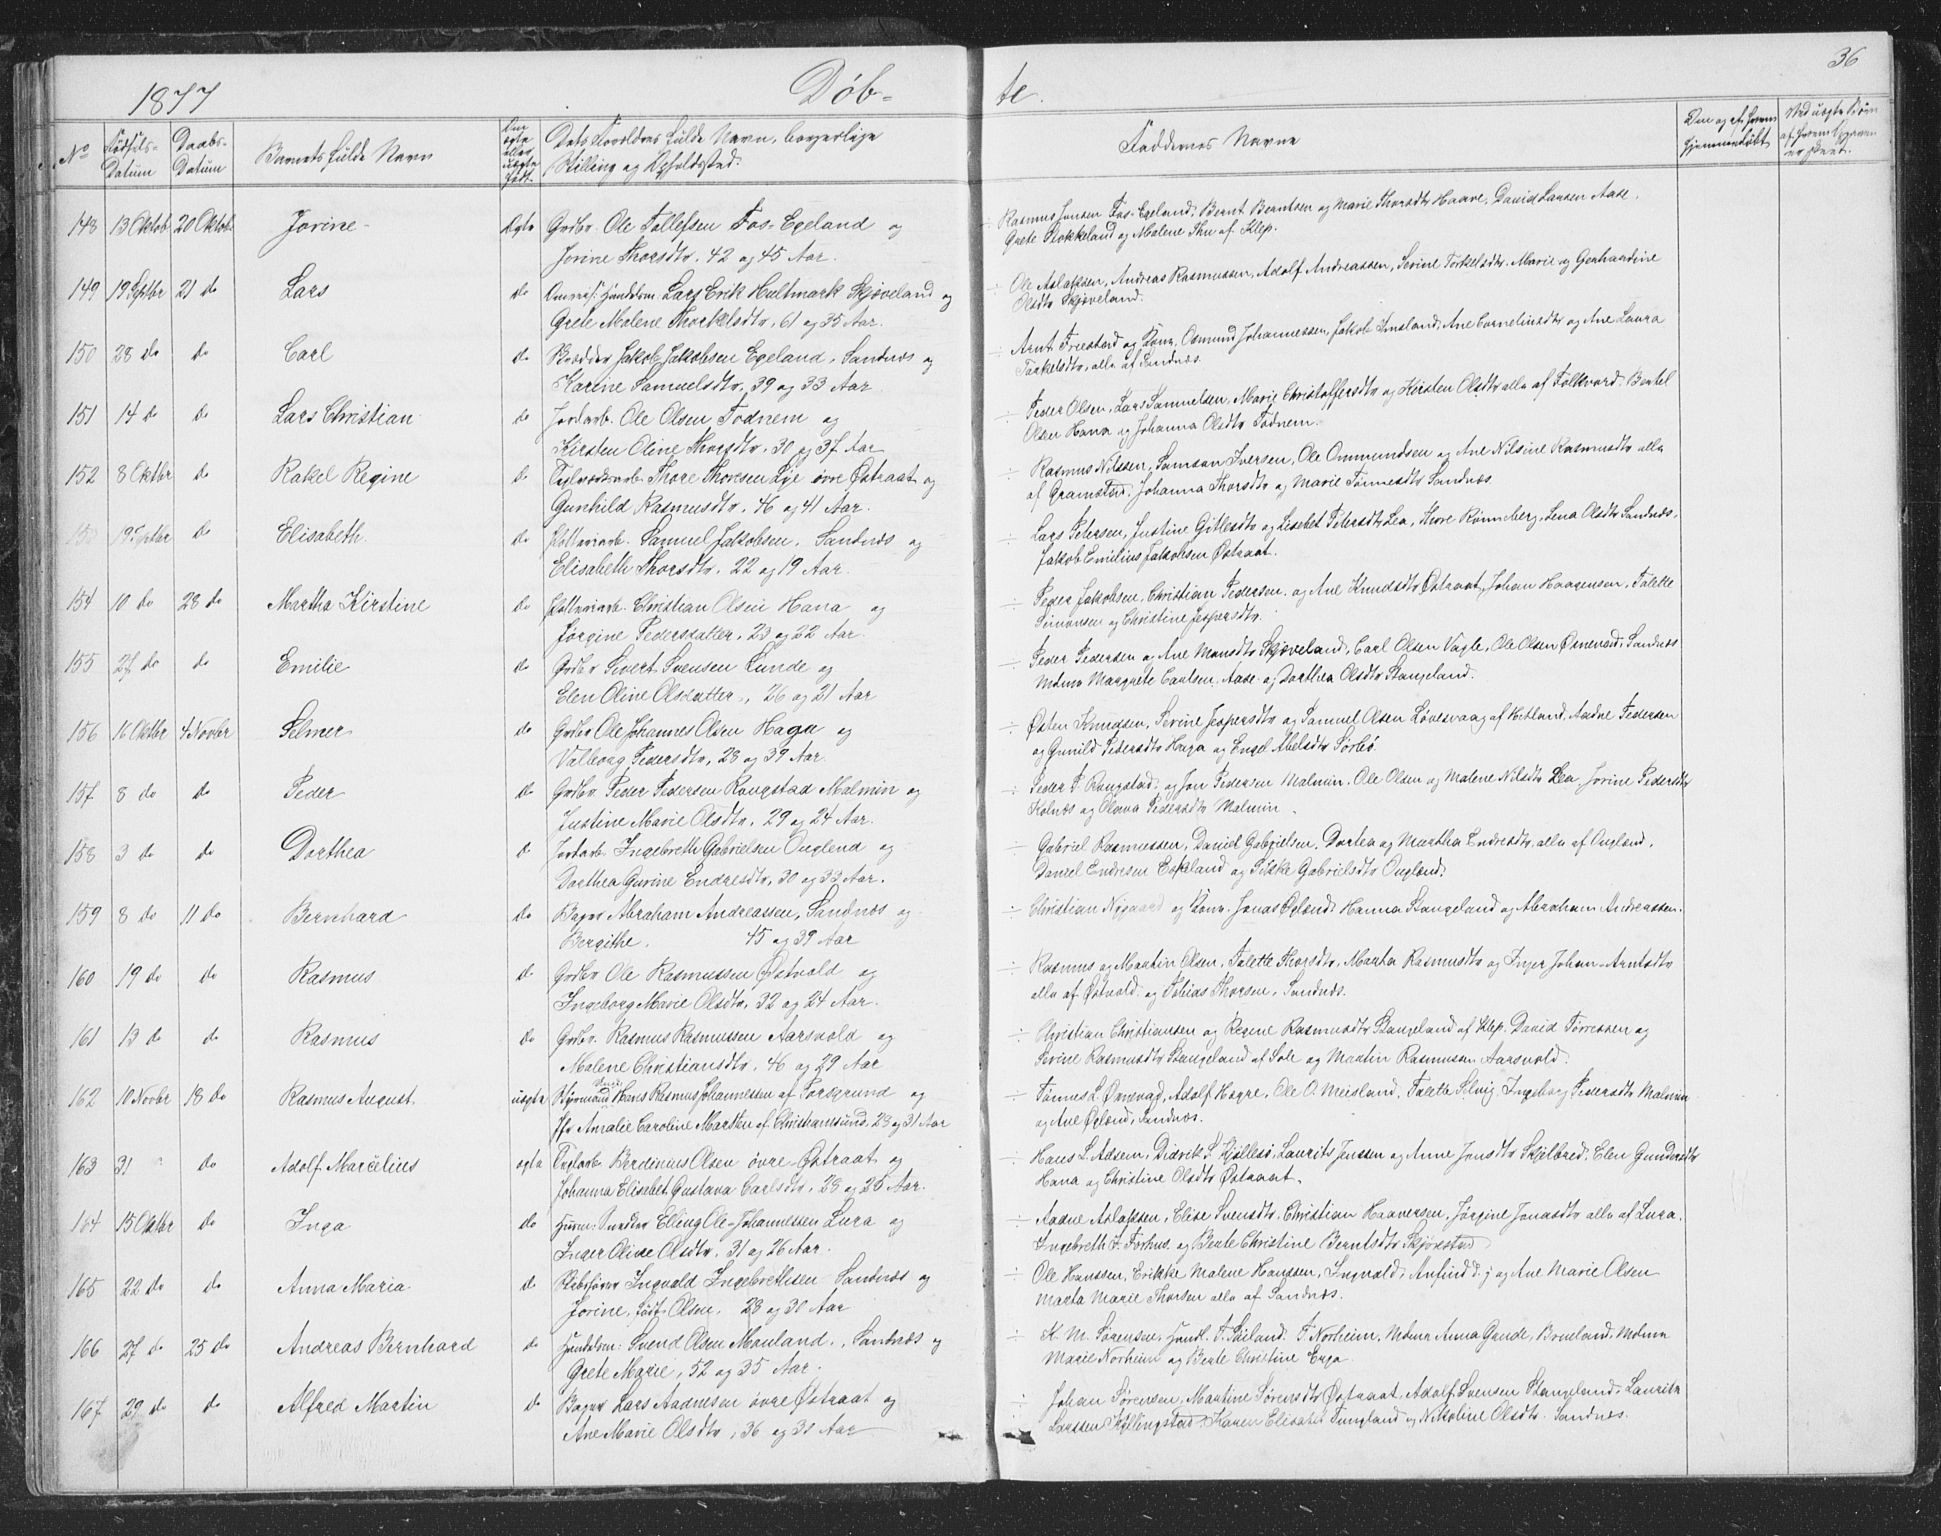 36
1877 Døb- te.
No Fødsels- Datum Daabs- Datum Barnets fulde Navn Om ægte eller uægte født Dets Forældres fulde Navn, borgerlige Stilling og Opholdssted. Faddernes Navne Om og af hvem hjemmedøbt Ved uægte Børn
148 13 Oktob 20 Oktob Jorine Ægte Grdbr. Ole Tollefsen Fos-Egeland og
Jorine Thorsdtr. 42 og 45 Aar.
÷ Rasmus Jonsen Fos-Egeland, Bernt Berntsen og Marie Thorsdtr Haave, David Larsen Aase,
Grete Stokkeland og Malene Thu af Klep.
149 19 Septbr 21 do Lars do Handelsm. Lars Erik Hultmark Skjæveland og
Grete Malene Thorkelsdtr, 61 og 35 Aar.
÷ Ole Aslaksen, Andreas Rasmussen, Adolf Andreassen, Serine Torkelsdtr, Marie og
Olsdtr Skjæveland.
150 28 do do Carl do Jakob Jakobsen Egeland, Sandnæs og
Karine Samuelsdtr, 39 og 33 Aar
÷ Arnt Friestad og Kone, Osmund Johannessen, Jakob Imsland, Ane Corneliusdtr og Ane Laura
Torkelsdtr, alle af Sandnæs.
151 14 do do Lars Christian do Jordarb. Ole Olsen Todnem og
Kirsten Oline Thorsdtr, 30 og 37 Aar
÷ Peder Olsen, Lars Samuelsen, Marie Christoffersdtr og Kirsten Olsdtr alle af Folkvord. Bertel
Olsen Hana og Johanna Olsdtr Todnem.
152 8 Oktbr do Rakel Regine do Teglværksarb. Thore Thoresen Lye øvre Østraat og
Gunhild Rasmusdtr. 46 og 41 Aar.
÷ Rasmus Nilssen, Samson Iversen, Ole Ommundsen og Ane Nilsine Rasmusdtr alle
af Gramstad. Johanna Thorsdtr og Marie Tønnesdtr Sandnæs.
19 Septbr do Elisabeth do Potteriarb. Samuel Jakobsen, Sandnæs og
Elisabeth Thorsdtr. 22 og 19 Aar.
÷ Lars Petersen, Justine Gitlesdtr og Lisebet Petersdtr Lea, Thore Rønneberg, Lena Olsdtr Sandnæs,
Jakob Emilius Jakobsen Østraat.
154 10 do 28 do Martha Kirstine do Pottariarb. Christian Olsen Hana og
Jørgine Pedersdatter, 23 og 22 Aar.
÷ Peder Jakobsen, Christian Pedersen, og Ane Knudsdtr Østraat, Johan Haagensen, Talette
Simonsen og Christine Jespersdtr.
155 27 do do Emilie do Grdbr Sivert Svensen Lunde og
Elen Oline Olsdatter, 26 og 21 Aar
÷ Peder Pedersen og Ane Monsdtr Skjæveland, Carl Olsen Vagle, Ole Olsen Ømevad, Sandnæs
Mdme Margrete Paulsen. Aase og Dorthea Olsdtr Stangeland.
156 16 Oktbr 4 Novbr Selmer do Grdbr Ole Johannes Olsen Haga og
Valborg Pedersdtr, 28 og 39 Aar.
÷ Østen Knudsen, Serine Jespersdtr og Samuel Olsen Løvesvaag af Hetland, Aadne Pedersen
og Gunild Pedersdtr Haga og Engel Abelsdtr Sørbø.
157 8 do do Peder do Grdbr Peder Pedersen Rongstad Malmin og
Justine Marie Olsdtr, 29 og 24 Aar.
÷ Peder P. Rongstad, og Jon Pedersen Malmin, Ole Olsen og Malene Nilsdtr Lea, Jorine Pedersdtr
Kolnæs og Olava Pedersdtr Malmin.
158 3 do do Dorthea do Jordarb. Ingebreth Gabrielsen Ougland og
Dorthea Gurine Endresdtr, 30 og 33 Aar.
÷ Gabriel Rasmussen, Daniel Gabrielsen, Dortea og Martha Endresdtr, alle af Ougland,
Daniel Endresen Eskeland og Sikke Gabrielsdtr Ougland.
159 8 do 11 do Bernhard do Bager Abraham Andreassen, Sandnæs og
Bergithe, 45 og 39 Aar
÷ Christian Nygaard og Kone. Jonas Øglænd, Hanna Stangeland og Abraham Andreassen.
160 19 do do Rasmus do Grdbr Ole Rasmussen Østvold og
Ingeborg Marie Olsdtr, 32 og 24 Aar.
÷ Rasmus og Martin Olsen, Talette Thorsdtr, Marta Rasmusdtr og Inger Johan-Arntsdtr
alle af Østvold og Tobias Thorsen, Sandnæs.
161 13 do do Rasmus do Grdbr. Rasmus Rasmussen Aarsvold og
Malene Christiansdtr. 46 og 29 Aar
÷ Christian Christiansen og Regine Rasmusdtr Stangeland af Klep. David Torressen og
Serine Rasmusdtr Stangeland af Sole og Martin Rasmussen Aarsvold.
162 10 Novbr 18 do Rasmus August uægte Styrmand Hans Rasmus Johannessen af Porsgrund og
Amalie Caroline Marsten af Christiansund, 28 og 31 Aar
÷ Tønnes L. Ømevad, Adolf Hogre, Ole O. Meisland, Talette Selvig, Ingeborg Pedersdtr Malmin
og Ane Øglænd, Sandnæs.
163 31 do Adolf Marcelius ægte Teglarb. Berdinius Olsen øvre-Østraat og
Johanna Elisabet Gustava Carlsdtr, 28 og 25 Aar.
÷ Hans L. Adsem, Didrik S. Kjølleso, Laurits Jenssen og Anne Jonsdtr Skjelbred, Elen Gundersdtr
Hana og Christine Olsdtr Østraat.
164 15 Oktbr do Inga do Elling Ole-Johannessen Lura og
Inger Oline Olsdtr. 31 og 26 Aar.
÷ Aadne Aslaksen, Elise Svensdtr, Christian Haaversen, Jørgine Jonasdtr alle af Lura.
Ingebreth I. Forhus og Berte Christine Berntsdtr Skjørestad
165 22 do do Anna Maria do Skibsfører Ingvald Ingebrethsen Sandnæs og
Jorine, født Olsen. 28 og 30 Aar
÷ Ole Hanssen, Erikke Malene Hanssen, Ingvald, Anfind og Ane Marie Olsen
Marta Marie Thorsen alle af Sandnæs.
166 27 do 25 do Andreas Bernhard do Handelsm: Svend Olsen Mauland, Sandnæs og
Grete Marie, 52 og 35 Aar.
÷ K. M. Sørensen, Handl. T. Søiland, T. Norheim, Mdme Anna Gande, Brueland, Mdme
Marie Norheim og Berte Christine Erga.
167 29 do do Alfred Martin do Bager Lars Aadnesen øvre Østraat og
Ane Marie Olsdtr, 36 og 3 Aar
÷ Johan Sørensen, Martine Sørensdtr Østraat, Adolf Svensen Stangeland, Lauritz
Larssen Kyllingstad, Karen Elisabet Tungland og Nikoline Olsdtr. Sandnæs.